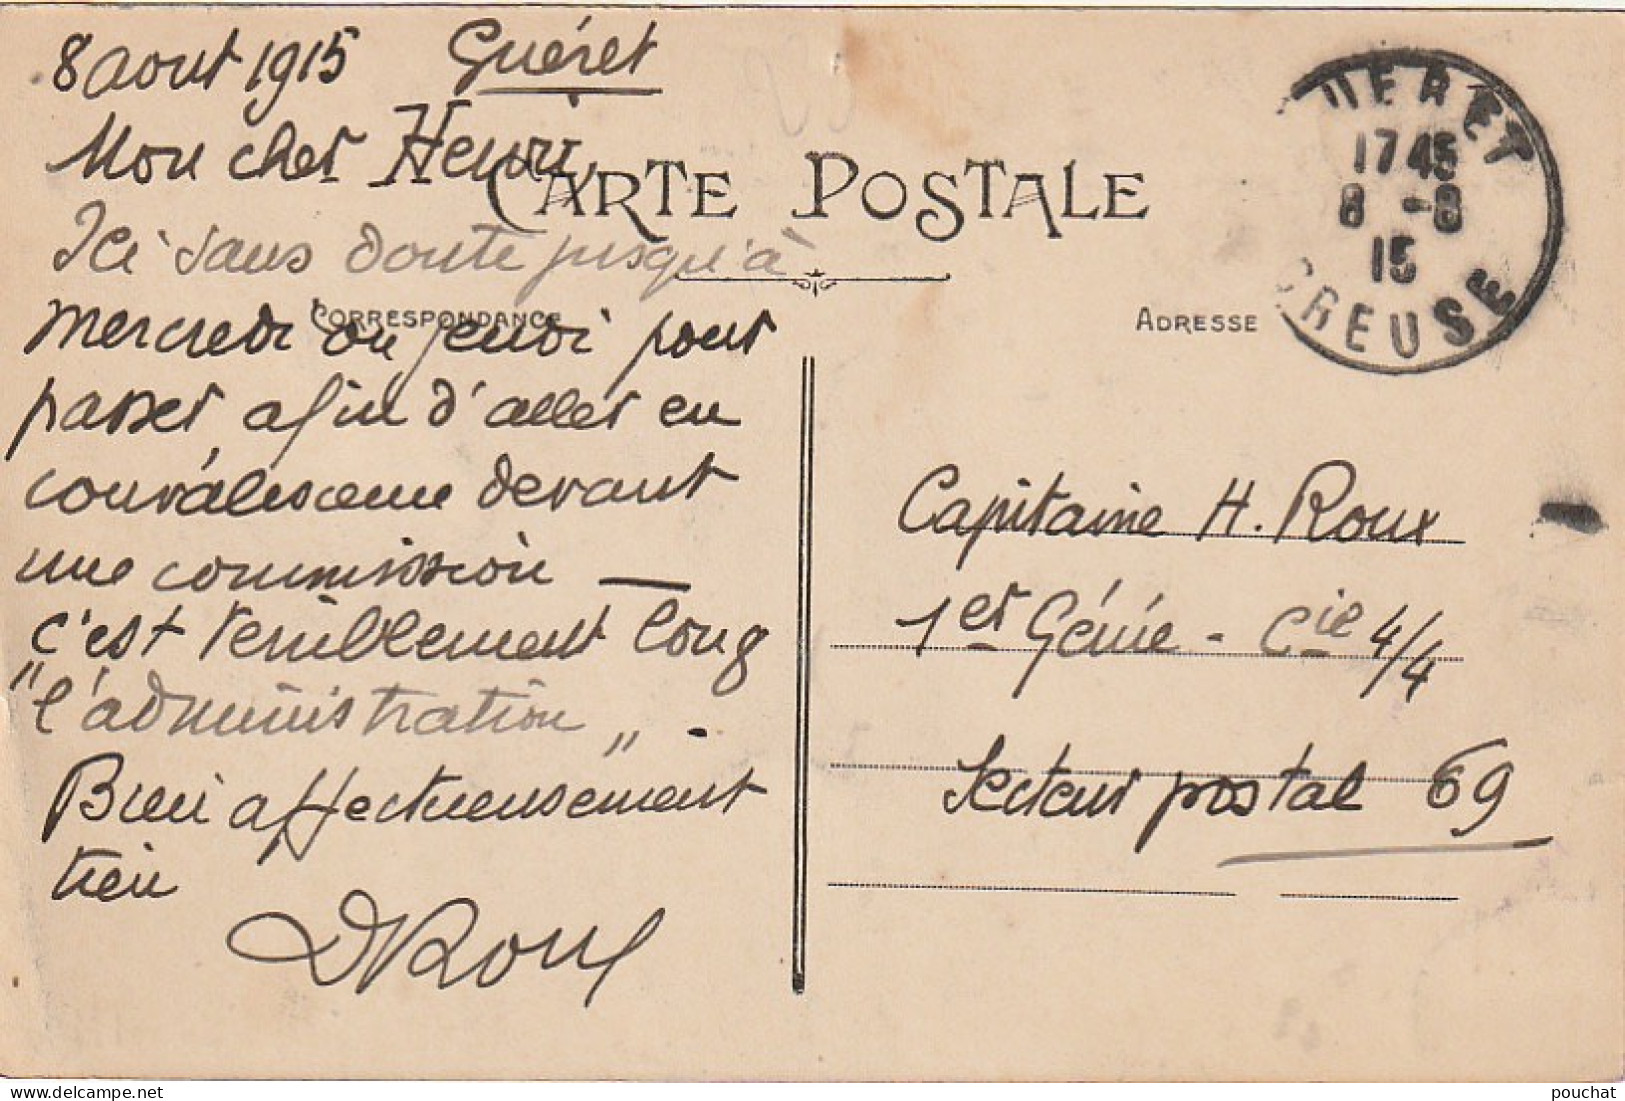 8 aout 1915 Guéret
Mon cher Henri,
CARTE POSTALE
Ici sans doute jusqu'à
CORRESPONDANCE
mercredi ou jeudi pour
passer, afin d'aller en
convalescence devant
une commission —
c'est terriblement long
"l'administration".
Bien affectueusement
tien
DRoux
GUERET
17 45
8 -8
15
CREUSE
ADRESSE
Capitaine H. Roux
1er Génie - Cie 4/4
Secteur postal 69
pouchat